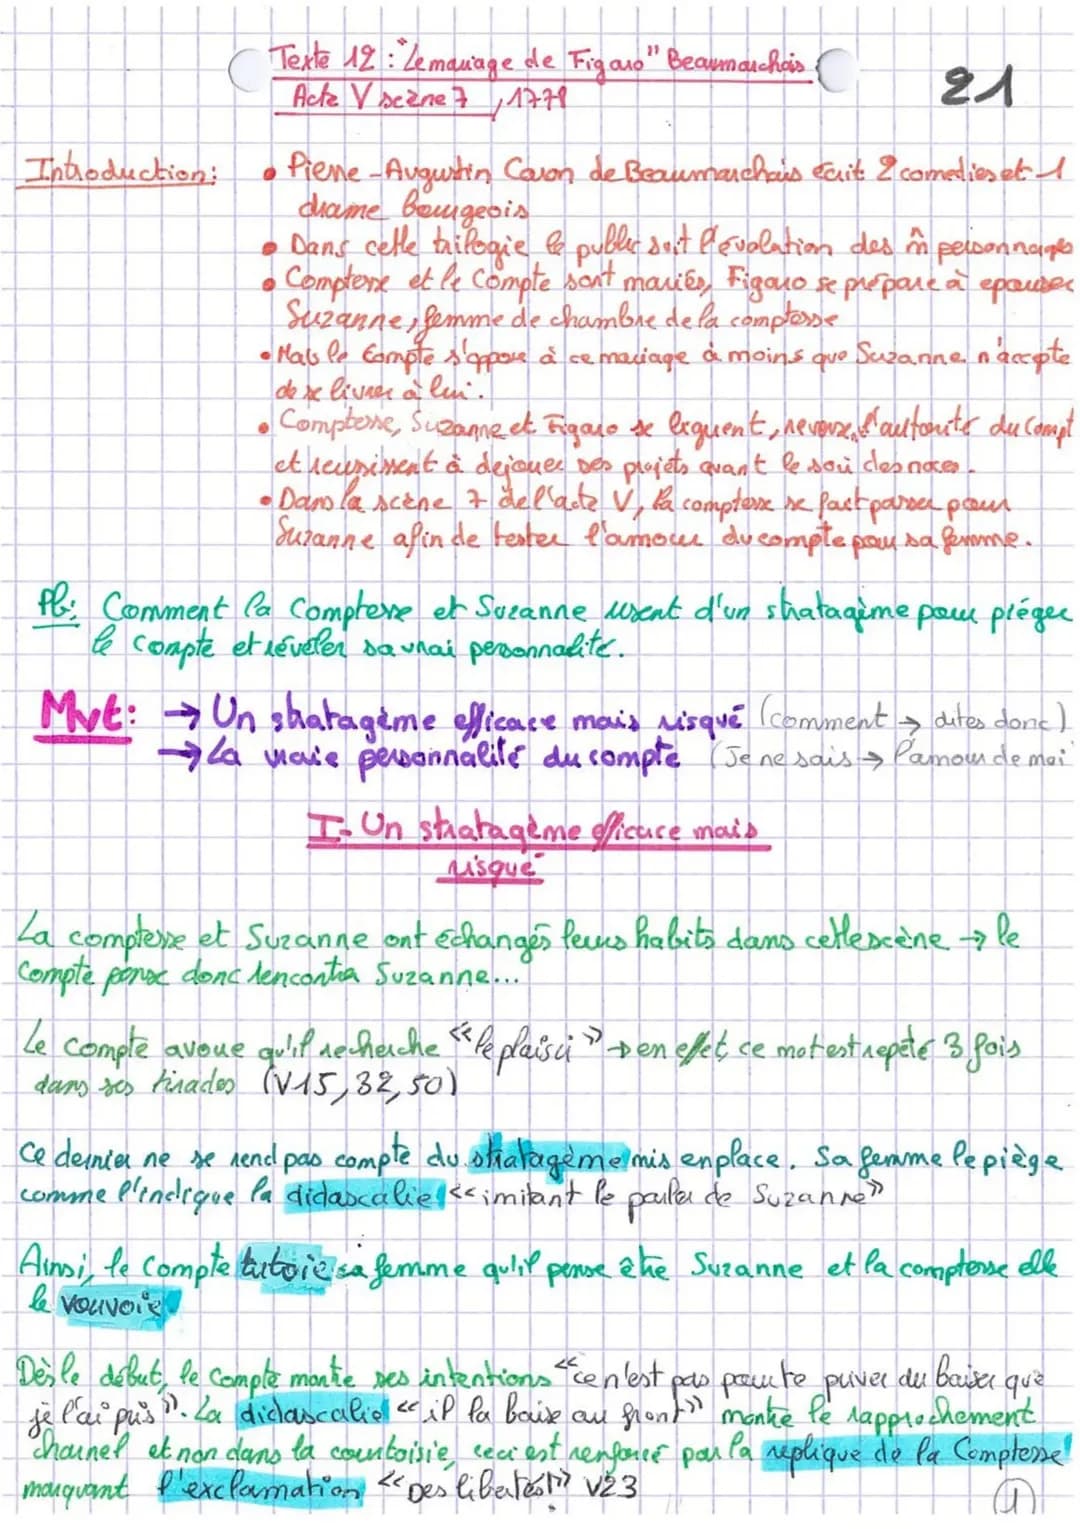 Texte 12 : "Le mariage de Figaro" Beaumarchais
Acte V scène 7, 1778
21
Introduction:
• Pierre-Augustin Caron de Beaumarchais écrit 2 comedies et 1
drame bourgeois
• Dans cette trilogie le public suit l'évolation des m̂ personnages
• Comptesse et le Compte sont mariés, Figaro se prépare à epouser
Suzanne, femme de chambre de la comptesse
• Mais le Compte s'oppose à ce mariage à moins que Suzanne n'accepte
de se livrer à lui.
• Comptesse, Suzanne et Figaro se liguent, l'autorité du Compt
et reussissent à dejouer ses projets avant le soir des noces.
• Dans la scène 7 de l'acte V, la comptesse se fait passer pour
Suzanne afin de tester l'amour du compte pour sa femme.
Pb: Comment la Comptesse et Suzanne usent d'un stratagème pour piéger
le Compte et révéler sa vrai personnalité.
Mvt: → Un stratagème efficace mais risqué (comment → dites donc)
→ La vraie personnalité du compte (Je ne sais → l'amour de moi
I- Un stratagème efficace mais
risqué
La comptesse et Suzanne ont échangés leurs habits dans cette scène → le
Compte pense donc rencontra Suzanne...
Le compte avoue qu'il recherche «le plaisir» → en effet, ce mot est repété 3 fois
dans ses tirades (V15, 32, 50)
Ce dernier ne se rend pas compte du stratagème mis en place. Sa femme le piège
comme l'indique la didascalie «imitant le parler de Suzanne»
Ainsi, le Compte tutoie sa femme qu'il pense être Suzanne et la comptesse elle
le vouvoie
Dès le début, le Compte montre ses intentions «ce n'est pas pour te priver du baiser que
je l'ai pris». La didascalie «il la baise au front» montre le rapprochement
charnel et non dans la courtoisie, ceci est renforcé par la replique de la Comptesse
marquant l'exclamation «Des libertés!» V23
1